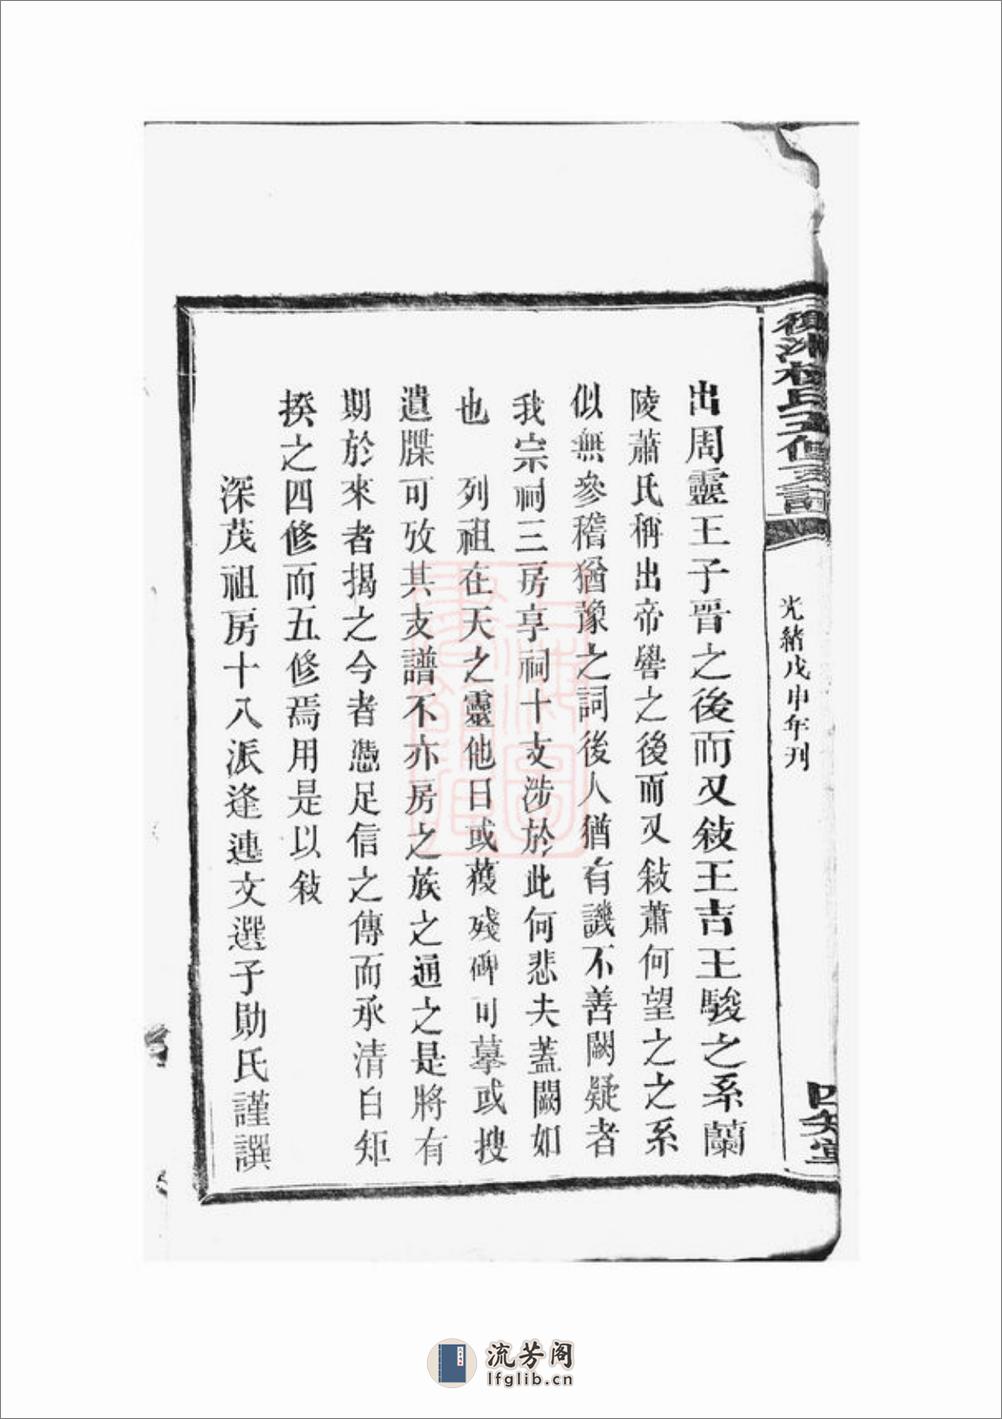 氏五修支
光緒戊申年刊
四知堂
出周靈王子晉之後而又敍王吉王駿之系蘭
陵蕭氏稱出帝嚳之後而又敍蕭何望之之系
似無參稽猶豫之詞後人猶有譏不善闕疑者
我宗祠三房享祠十支涉於此何悲夫蓋闕如
也　列祖在天之靈他日或蒦殘碑可摹或搜
遺牒可攷其支譜不亦房之族之通之是將有
期於來者揭之今者憑足信之傳而承清白矩
揆之四修而五修焉用是以敍
深茂祖房十八派逢連文選子勛氏謹譔
上海圖書館藏
流芳阁
lfglib.cn